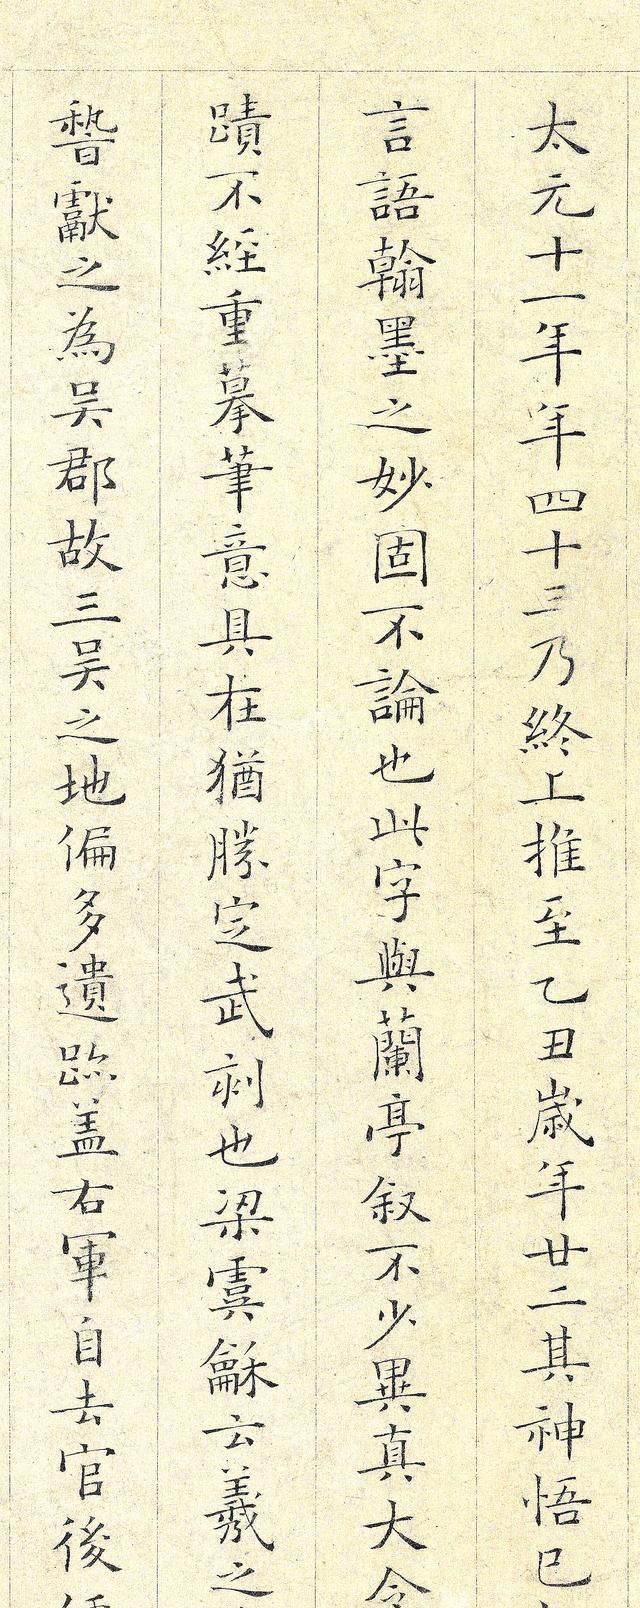 太元十一年年四十三乃終上推至乙丑歲年廿二其神悟已
言語翰墨之妙固不論也此字與蘭亭叙不少異真大令
蹟不經重摹筆意具在猶勝定武刻也梁虞龢云羲之
晉獻之為吳郡故三吳之地偏多遺跡蓋右軍自去官後